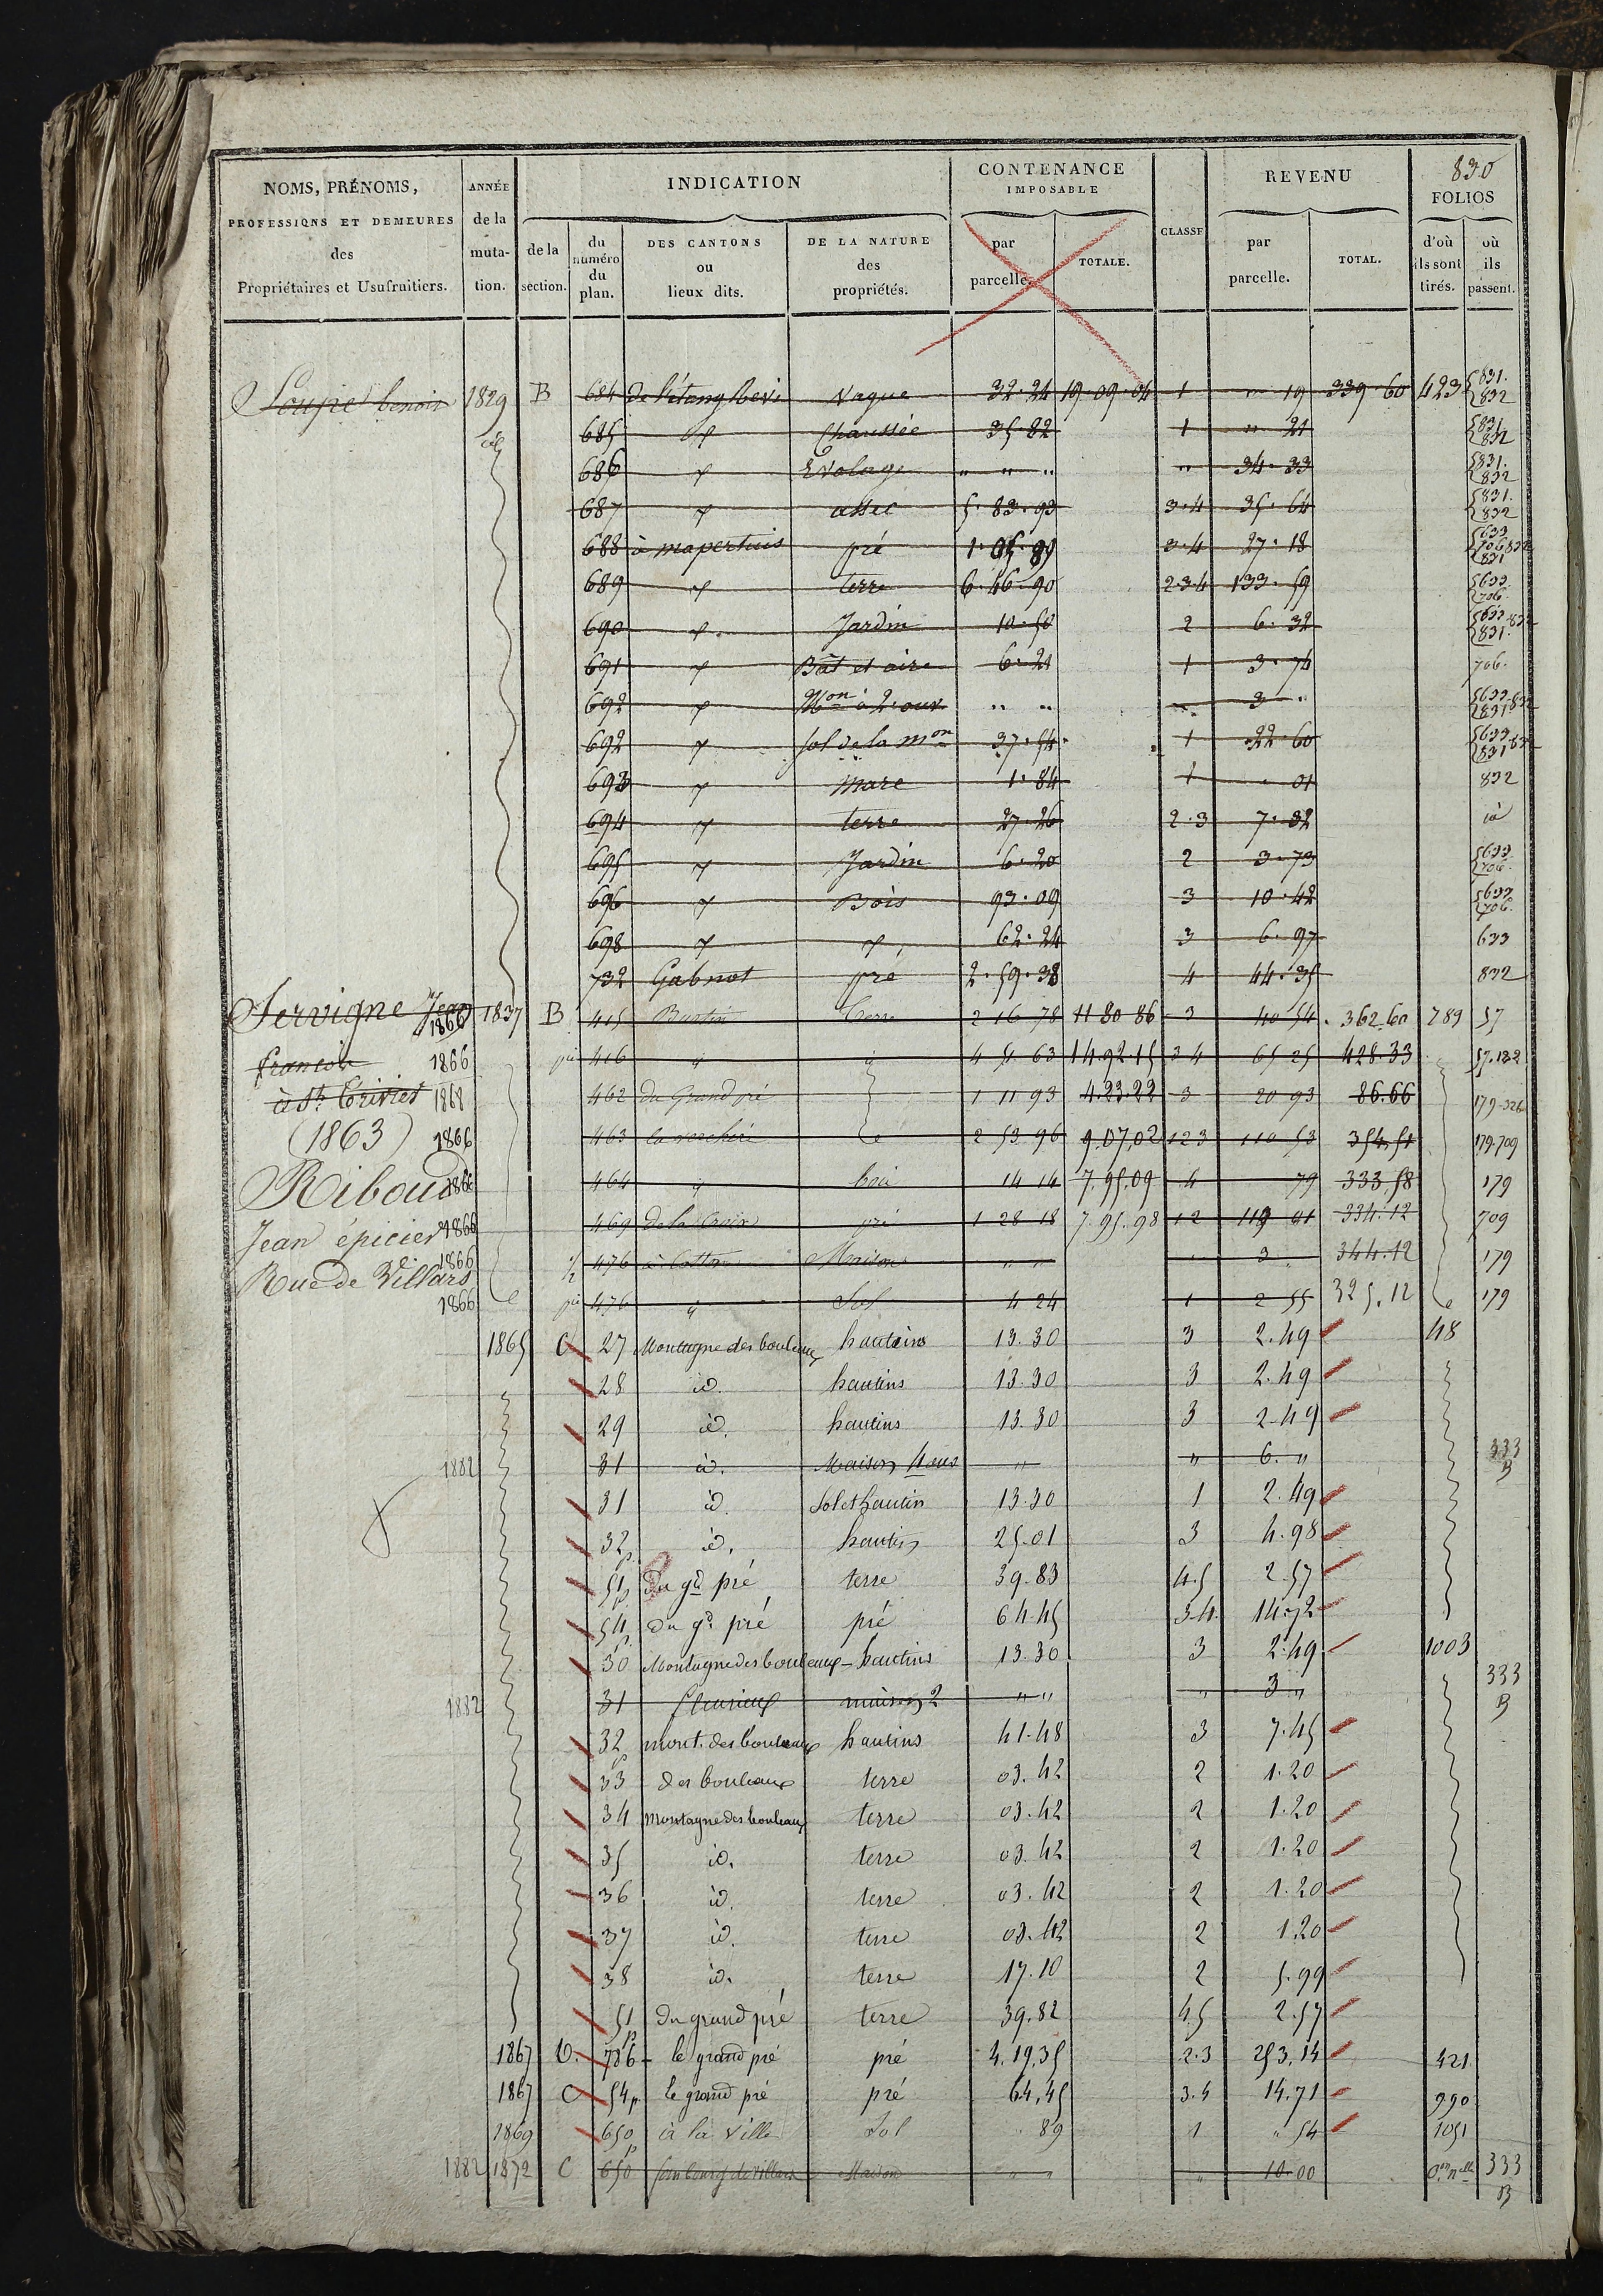 830
NOMS, PRÉNOMS,
PROFESSIONS ET DEMEURES
des
Propriétaires et Usufruitiers.
ANNÉE
de la
muta-
tion.
INDICATION
de la
section.
du
numéro
du
plan.
DES CANTONS
ou
lieux dits.
DE LA NATURE
des
propriétés.
CONTENANCE
IMPOSABLE
par
parcelle.
TOTALE.
CLASSE
REVENU
par
parcelle.
TOTAL.
FOLIOS
d'où
ils sont
tirés.
où
ils
passent.
1829 B 684 de l'étang Vaque 32.24 19.09.04 1 " 19 339.60 423 831. 832
id 685 Chaussée 35.82 1 " 21 831 832
686 Evolage " " " " 34.33 831. 832
687 assec 5.83.93 3.4 35.64 831. 832
688 à mapertuis pré 1.05.89 3.4 27.18 633 706 832 831
689 terre 6.46.90 2.3.4 133.59 633. 706
690 Jardin 10.50 2 6.32 633 832 831.
691 Bât et aire 6.21 1 3.74 706.
692 Mon à 2 ouv. " " " 3 " 633 832 831
692 sol de la mon 37.54 1 22.60 633 832 831
693 mare 1.84 1 " 01 832
694 terre 27.26 2.3 7.32 id
695 Jardin 6.20 2 3.73 633. 706
696 Bois 93.09 3 10.42 633 706
698 62.24 3 6.97 633
732 Gabnot pré 2.59.38 4 44.35 832
Servigne Jean 1866 1837 B 415 Terre 2 16 78 11 80 86 3 40 54 362.60 789 57
francois 1866 pie 416 " 4 5 63 14.92.15 3 4 65 25 428.33 57.182
à St. Trivier 1868 462 du Grand pré 1 11 93 4.23.22 3 20 93 86.66 179-326
(1863) 1866 463 la verchère 2 53 96 9.07.02 1 2 3 110 53 354.51 179.709
Riboud 1866 464 " bois 14 14 7.95.09 4 79 333.58 179
Jean épicier 1866 469 de la Croix pré 1 28 18 7.95.98 1 2 119 01 334.12 709
1866 1/2 476 à Cotton Maison " " " 3 " 344.12 179
Rue de Villars
1866 pie 476 " Sol 4 24 1 2 55 325.12 179
1865 C 27 Montagne des bouleaux hautins 13.30 3 2.49 48
28 id. hautins 13.30 3 2.49
29 id. hautins 13.30 3 2.49
1882 31 id. Maison 4 ouv " " 6. " 333 B
31 id. Sol et hautin 13.30 1 2.49
32 p id. hautin 25.01 3 4.98
51 p du gd pré terre 39.83 4.5 2.57
54 p du gd pré pré 64.45 3.4. 14.72
30 Montagne des bouleaux - hautins 13.30 3 2.49 1003
1882 31 maison 2 " " " 3 " 333 B
32 p mont. des bouleaux hautins 41.48 3 7.45
33 des bouleaux terre 03.42 2 1.20
34 montagne des bouleaux terre 03.42 2 1.20
35 id. terre 03.42 2 1.20
36 id. terre 03.42 2 1.20
37 id. terre 03.42 2 1.20
38 id. terre 17.10 2 5.99
51 p du grand pré terre 39.82 4.5 2.57
1867 786 - le grand pré pré 4.19.35 2.3 253.14 421
1867 C 54 p le grand pré pré 64.45 3.4 14.71 990
1869 650 p à la Ville Sol 89 1 " 54 1051
1882 1872 C 650 faubourg de Villars Maison " " " 10.00 333 B